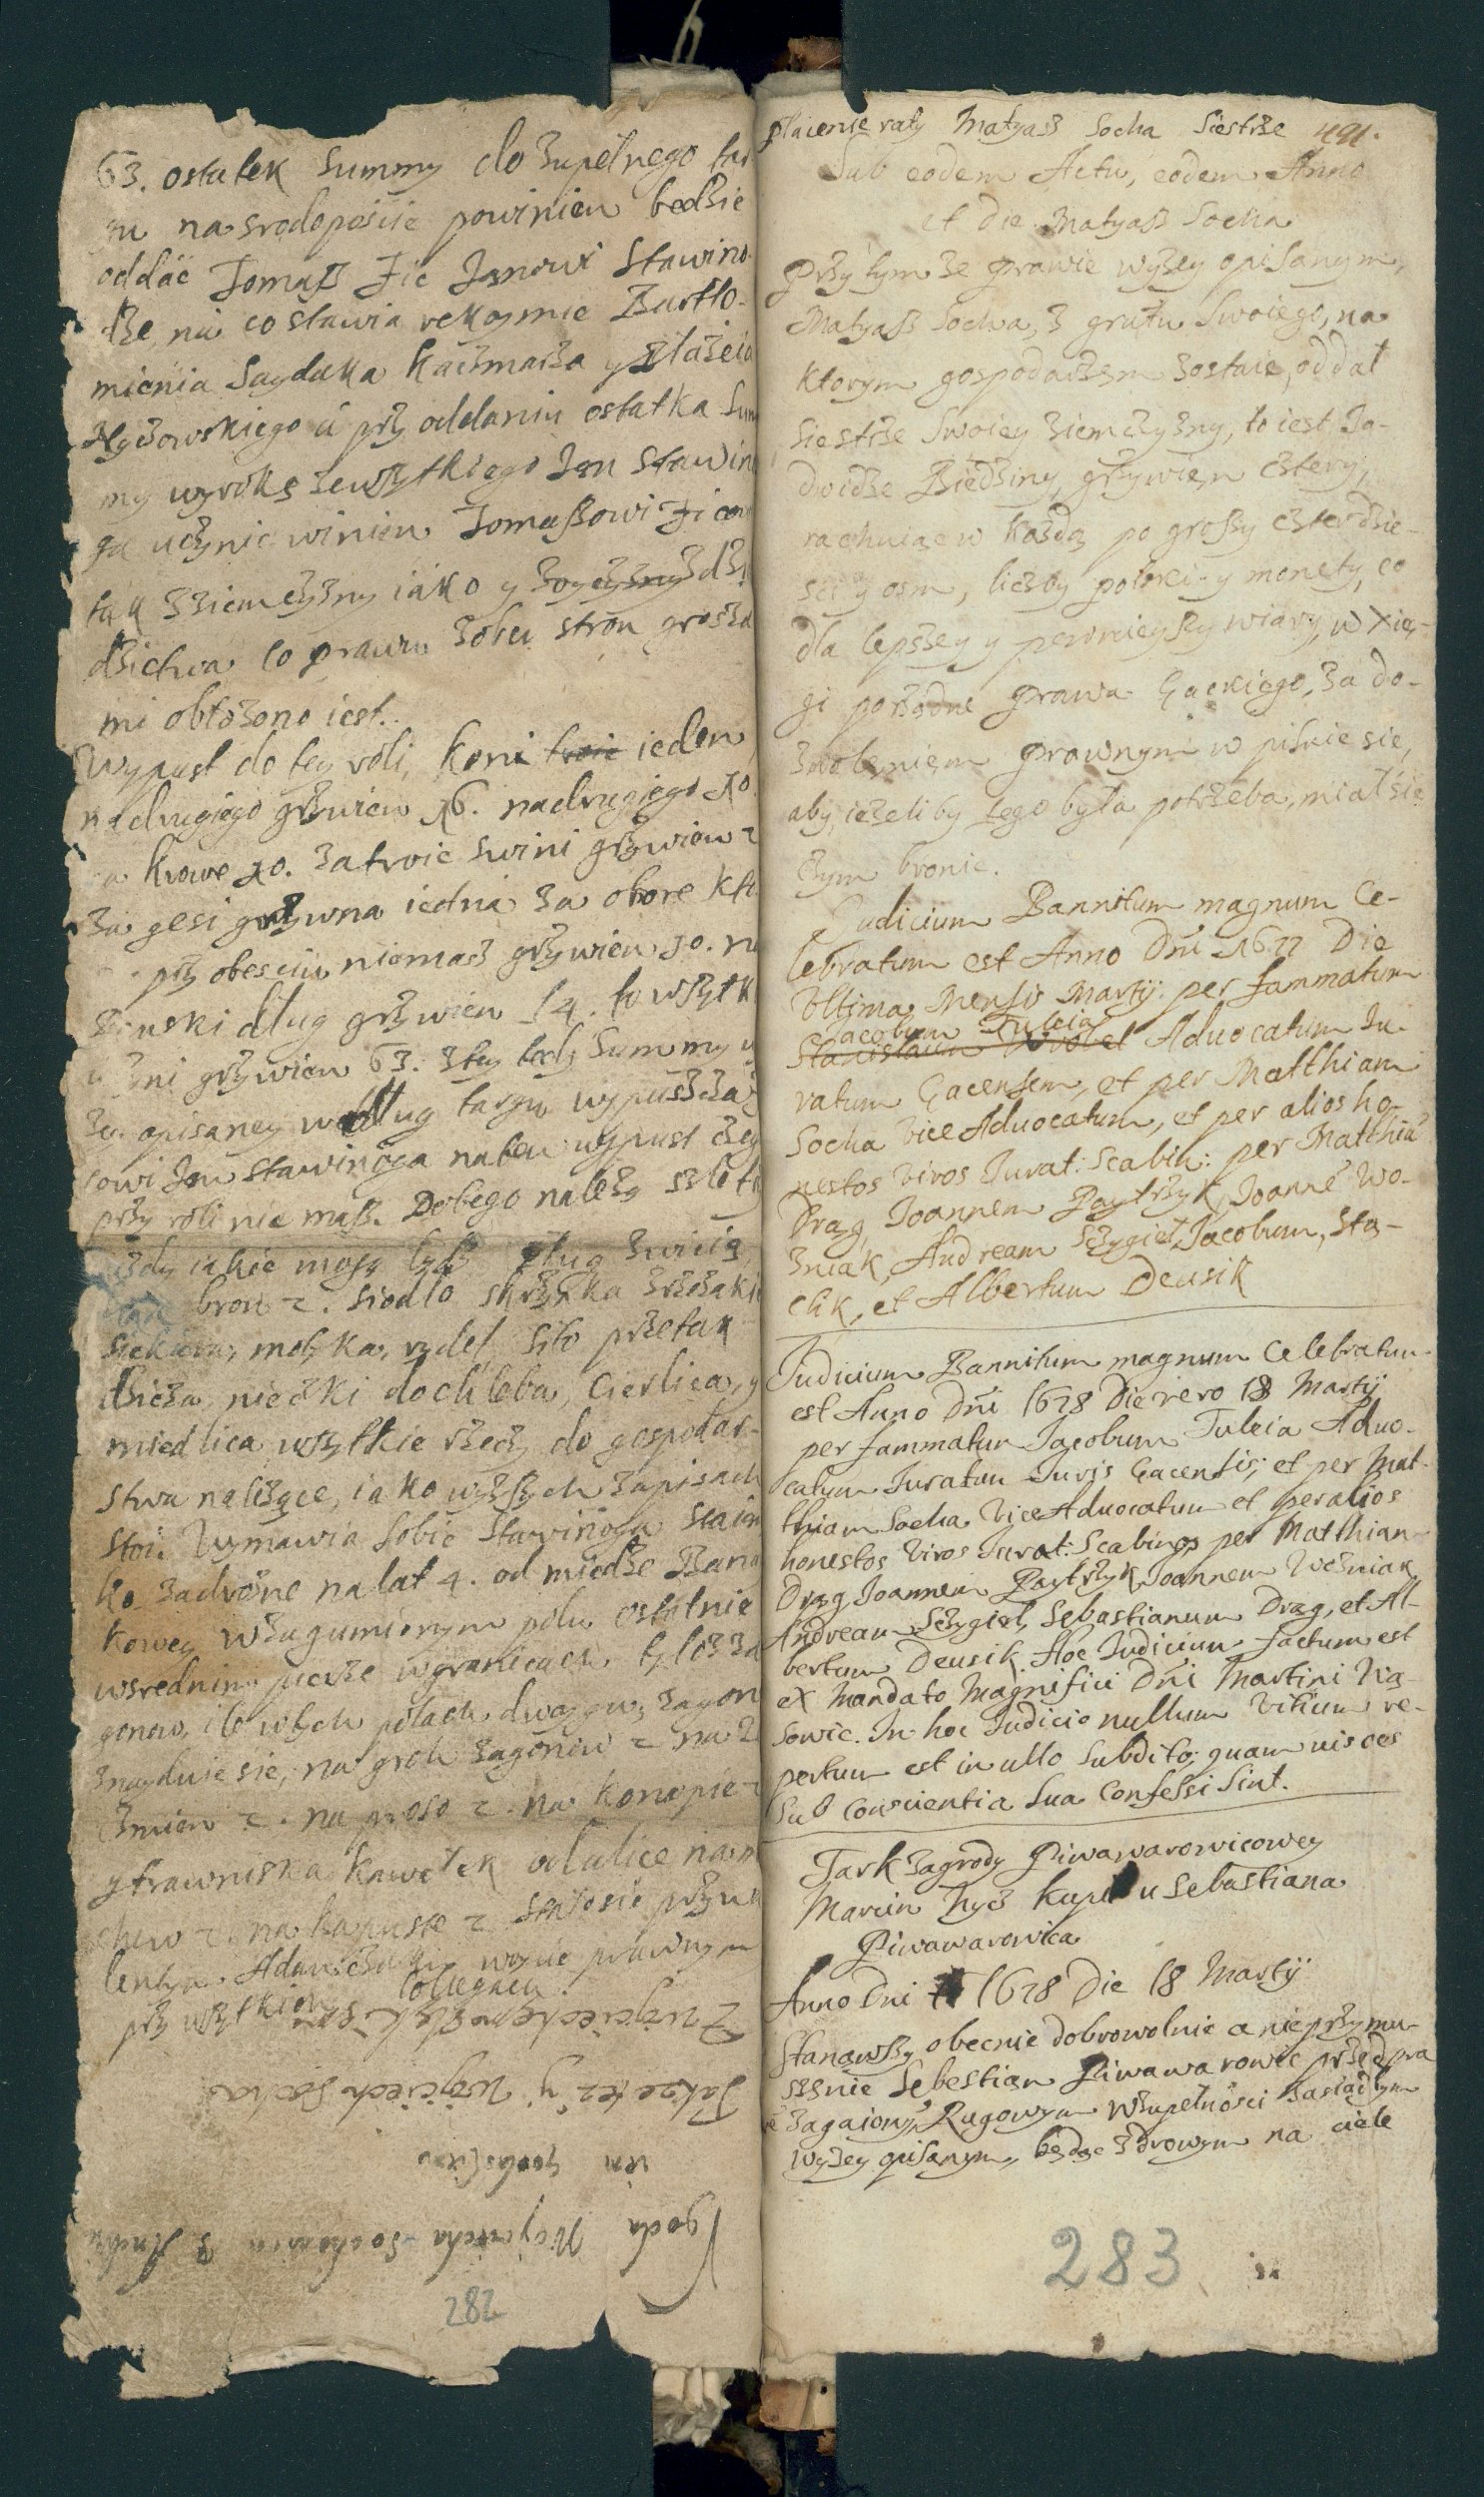 63. ostatek Summy do Zupełnego tar
gu na srodoposcie powinien bedzie
oddac Tomasz Fic Janowi Stawino-
dze, na co stawia rekoymie Bartło-
mieia Saydaka Kaczmarza y
Hyczowskiego a przy oddaniu ostatka Sum
my wyrokę zewszytkiego Jan Stawin
ga uczynic winien Tomaszowi Ficowi
tak zziemczyzny iako y zoyczyzny zdzi
dzictwa co prawu zobu stron grosza
mi obłożono iest.
Wypust do tey roli, koni troie ieden
na drugiego grzywien 16. nadrugiego 10.
a krowe 10. za troie swini grzywien 2
za gesi grzywna iedna za obore kto
przy obesciu niemasz grzywien 10. na
dług grzywien 14. to wszytk
grzywien 63. Ztey tedy Summy w
opisaney według targu wypuszcza
cowi Jan Stawinoga naten wypust czeg
przy roli nie masz. Dotego należą
iakie mogą bydz pług
bron 2. siodło skrzynka
siekiera, motyka, rydel, sito przetak
dzieża niecki do chleba, cierlica, y
miedlica wszytkie rzeczy do gospodar-
stwa należące, iako wyzszych zapisach
stoi. Wymawia sobie Stawinoga staien
ko zadworne na lat 4. od miedze Bana
kowey wzugumionym polu ostatnie
wsrednim pierze wgranicach tylo za
gonow, ilo wtych polach dwoygu, zagon
znayduie sie, na groch zagonow 2 na
2. na proso 2. na konopie 2
y trawniska kawełek od ulice na
2. na kapuste 2 Stałosie przy
lentym Adamczuku woycie prawnym
przy wszytkich collegach
Z woyciechem
Takze tez y Woyciech Socha
Zgoda Woyciecha Sochowica z
282
płacenie raty Matyasz Socha Siestrze 491.
Sub eodem Actu, eodem Anno
et die Matyasz Socha
Przy tym ze prawie wyzey opisanym,
Matyasz Socha, z grutu Swoiego, na
ktorym gospodarzem zostaie, oddał
Siestrze Swoiey ziemczyzny, to iest Ja-
dwidze Biedziny, grzywien cztery,
rachuiąc w każdą po groszy czterdzie-
sci y osm, liczby polski y monety, co
dla lepszey y pewnieyszy wiary, w Xię-
gi porządne Prawa Gackiego, za do-
zwolęnięm Prawnym w pisuie sie,
aby, iezeli by tego była potrzeba, miał sie
czym bronic.
Judicium Bannitum magnum Ce-
lebratum est Anno Dni 1677 Die
Vltima Mensis Martij per fammatum
Jacobum Tulcia
Stanislaum Wrobel Aduocatum Ju-
ratum Gacensem, et per Matthiam
Socha Vice Aduocatum, et per alios ho-
nestos viros Jurat: Scabin: per Matthia
Drąg, Joannem Paytrzyk, Joanne Wo-
zniak, Andream Szczygieł, Jacobum, Sta-
chk, et Albertum Deusik
Judicium Bannitum magnum Celebratum
est Anno Dni 1678 Die vero 18 Martij
per fammatum Jacobum Tulcia Aduo-
catum Juratum Juris Gacensis; et per Mat-
thiam Socha Vice Aduocatum et per alios
honestos Viros Jurat: Scabinos per Matthiam
Drąg Joannem Paytrzyk Joannem Wozniak
Andream Szczygieł, Sebastianum Drąg, et Al-
bertum Deusik. Hoc Judicium factum est
ex Mandato Magnifici Dni Martini Wą-
sowic. In hoc Judicio nullum Vitium re-
pertum est in ullo Subdito; quamuis oes
Sub conscientia Sua Confessi Sint.
Tark Zagrody Piwawarowicowey
Marcin Hyc kupił u Sebastiana
Piwawarowica
Anno Dni 1678 Die 18 Martij
Stanąwszy obecnie dobrowolnie a nieprzymu-
szenie Sebestian Piwawarowic przed pra
we zagaiony Rugowym Wzupełnosci zasiadłym
wyzey opisanym, będąc zdrowym na ciele
283